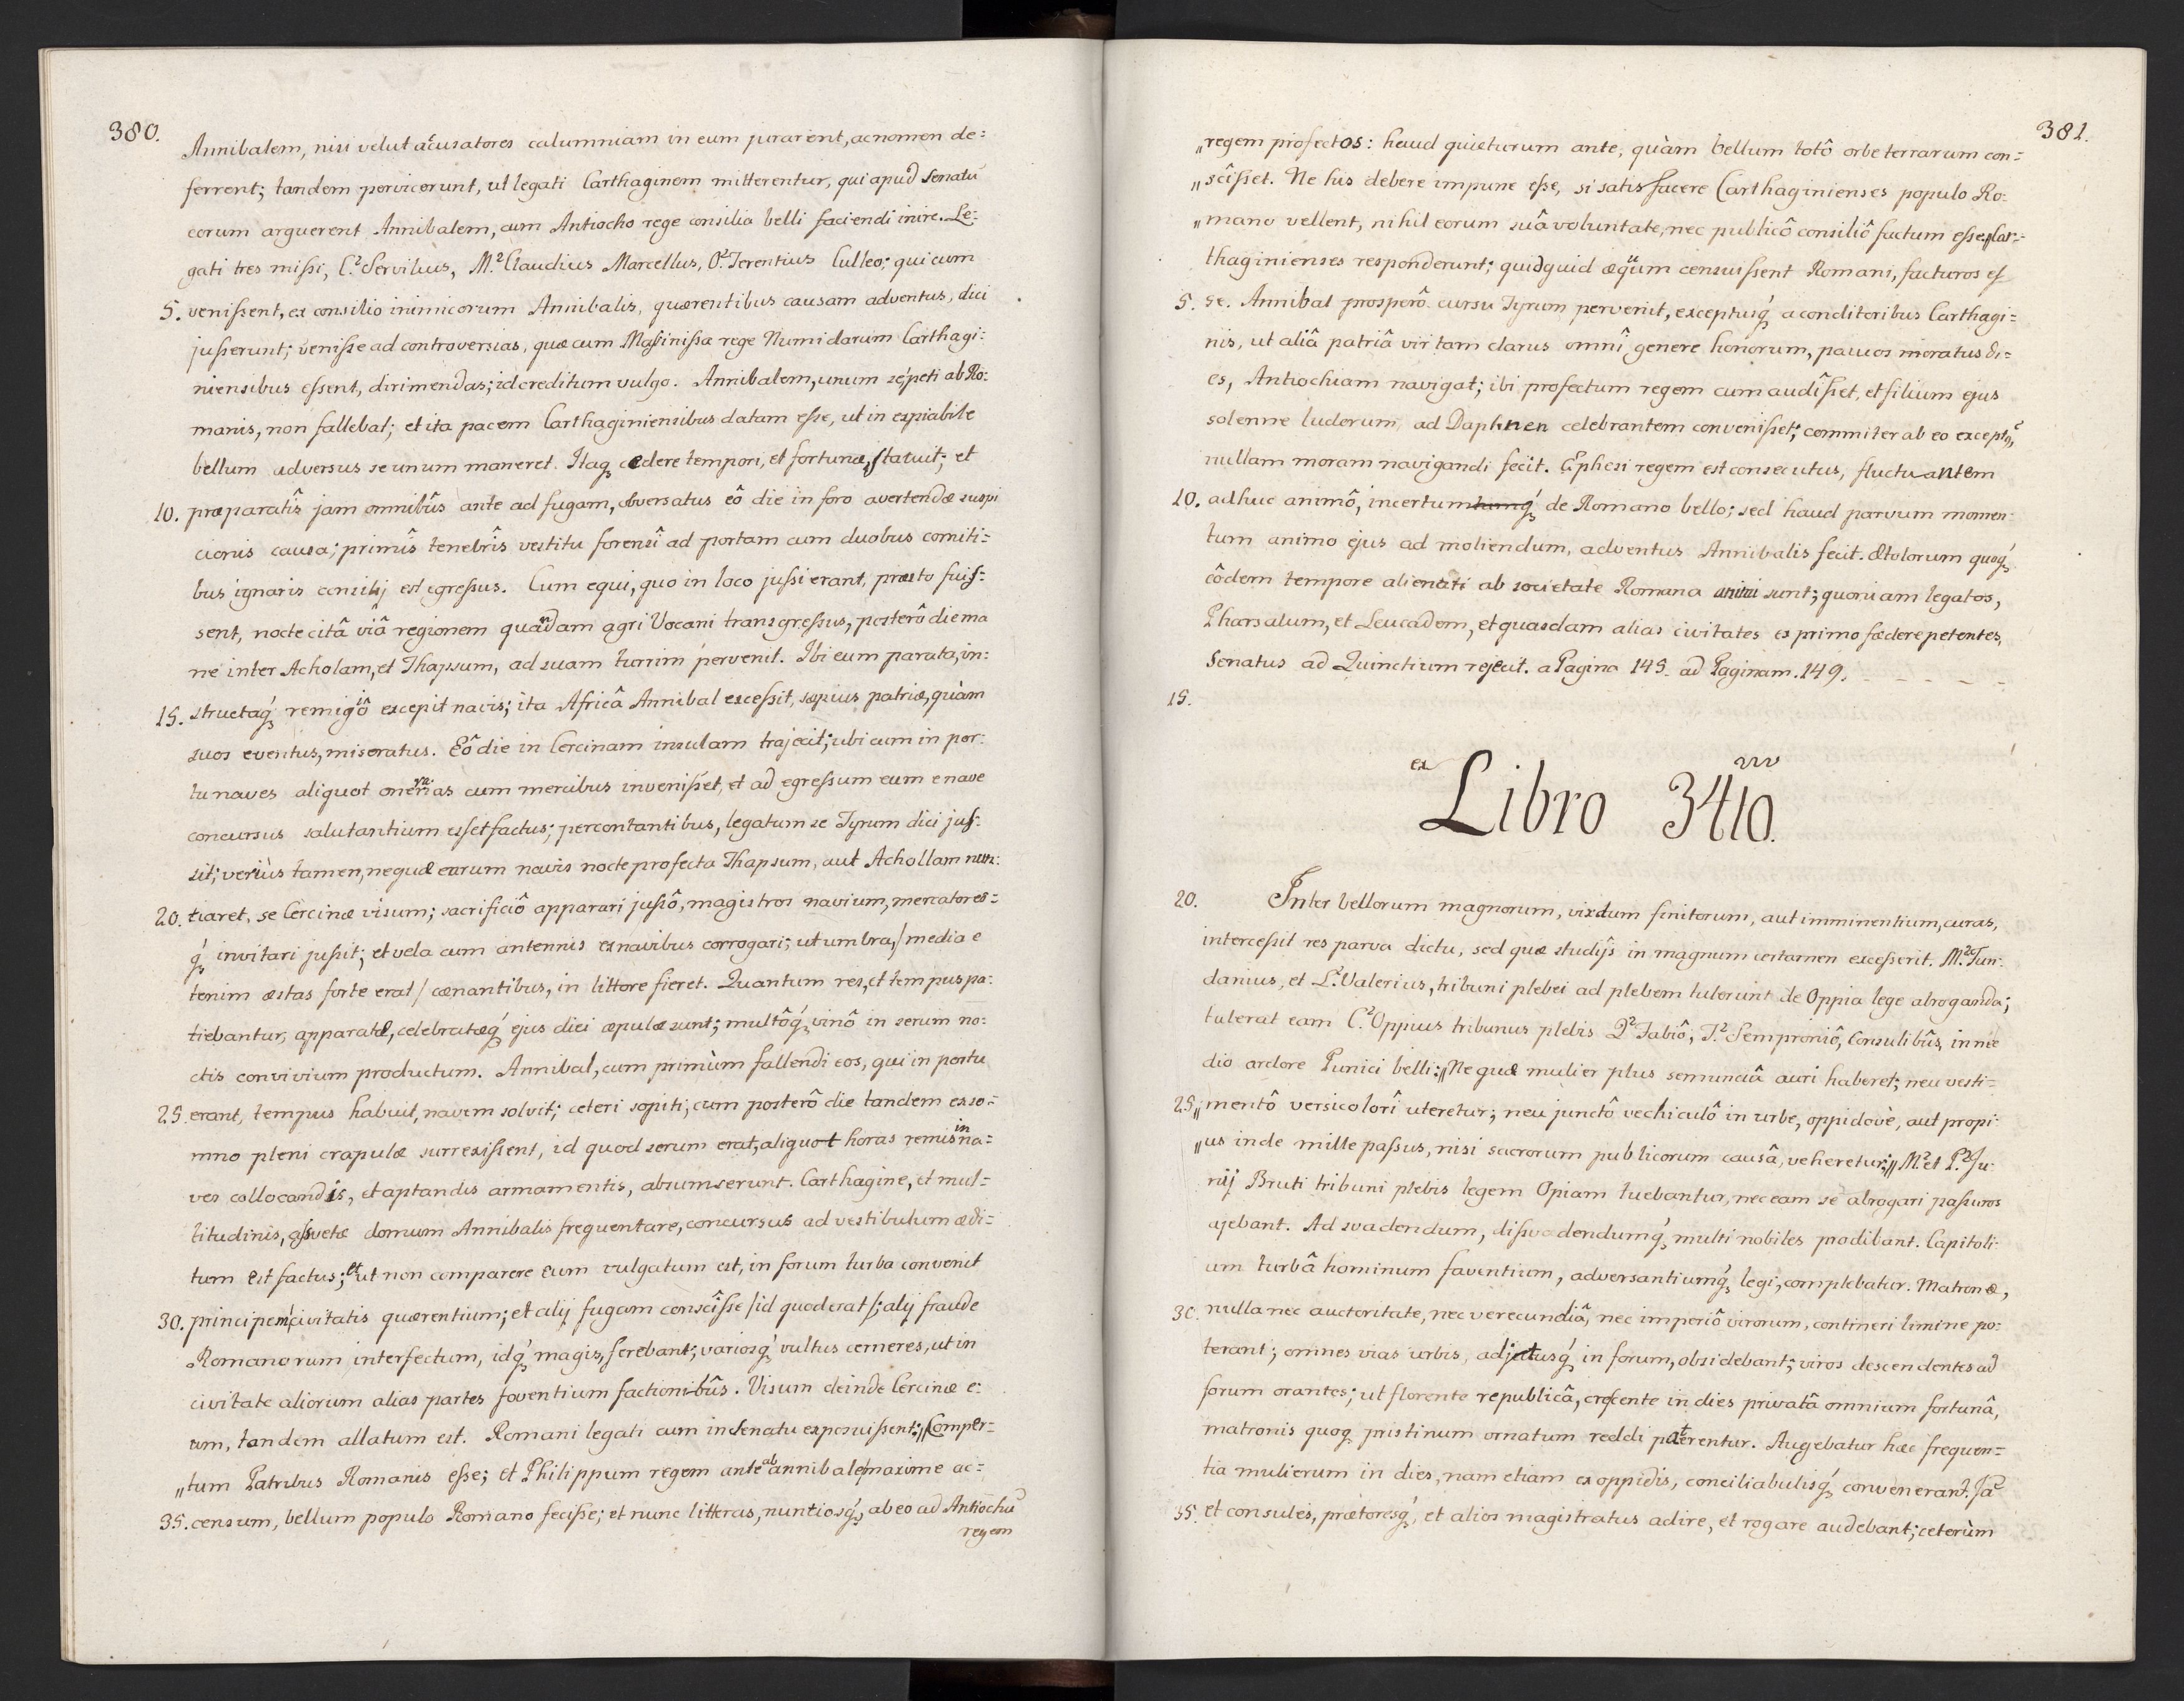 380.
Annibalem, nisi velut acusatores calumniam in eum jurarent, ac nomen de=
ferrent; tandem pervicerunt, ut legati Carthaginem mitterentur, qui apud Senatū
eorum arguerent Annibalem, cum Antiocho rege consilia belli faciendi inire. Le=
gati tres missi, C.² Servilius, M.² Claudius Marcellus, Q.² Terentius Culleo; qui cum
5. venissent, ex consilio inimicorum Annibalis, quærentibus causam adventus, dici
jusserunt; venisse ad controversias, quæ cum Masinissa rege Numidarum Carthagi=
niensibus essent, dirimendas; id creditum vulgo. Annibalem, unum sé peti ab Ro=
manis, non fallebat; et ita pacem Carthaginiensibus datam esse, ut in expiabile
bellum adversus se unum maneret. Itaq́ cedere tempori, et fortunæ, statuit; et
10. præparatîs jam omnibûs ante ad fugam, obversatus eô die in foro avertendæ suspi
cionis causa; primîs tenebrîs vestitu forensî ad portam cum duobus comiti=
bus ignaris consilij est egressus. Cum equi, quo in loco jussi erant, præsto fuis=
sent, nocte citâ viâ regionem quandam agri Vocani transgressus, posterô die ma
ne inter Acholam, et Thapsum, ad suam turrim pervenit. Ibi eum parata, in=
15. structaq́ remigiô excepit navis; ita Africâ Annibal excessit, sæpius patriæ, quàm
suos eventus, miseratus. Eô die in Cercinam insulam trajecit; ubi cum in por=
tu naves aliquot onerarias cum mercibus invenisset, et ad egressum eum e nave
concursus salutantium esset factus; percontantibus, legatum se Tyrum dici jus=
sit; veriùs tamen, ne quæ earum navis nocte profecta Thapsum, aut Achollam nun=
20. tiaret, se Cercinæ visum; sacrificiô apparari jussô, magistros navium, mercatores=
q́ invitari jussit; et vela cum antennis ex navibus corrogari; ut umbra, / media e
tenim æstas forte erat / cænantibus, in littore fieret. Quantum res, et tempus pa=
tiebantur, apparatæ, celebratæq́ ejus diei æpulæ sunt; multôq́ vinô in serum no=
ctis convivium productum. Annibal, cum primùm fallendi eos, qui in portu
25. erant, tempus habuit, navem solvit; ceteri sopiti, cum posterô die tandem ex so=
mno pleni crapulæ surrexissent, id quod serum erat, aliquot horas remis in na=
ves collocandis, et aptandis armamentis, absumserunt. Carthagine, et mul=
titudinis, assvetæ domum Annibalis frequentare, concursus ad vestibulum ædi=
um est factus; et ut non comparere eum vulgatum est, in forum turba convenit
30. principem civitatis quærentium; et alij fugam conscîsse / id quod erat /; alij fraude
Romanorum interfectum, idq́ magis, ferebant; variosq́ vultus cerneres, ut in
civitate aliorum alias partes foventium factionibûs. Visum deinde Cercinæ e=
um, tandem allatum est. Romani legati cum in Senatu exposuissent: „Comper=
„tum Patribus Romanis esse; et Philippum regem ante ab annibale maxime ac=
35. censum, bellum populo Romano fecisse; et nunc litteras, nuntiosq́, ab eo ad Antiochū
regem
381.
„regem profectos: haud quieturum ante, quàm bellum totô orbe terrarum con=
„scîsset. Ne his debere impune esse, si satis facere Carthaginienses populo Ro=
„mano vellent, nihil eorum suâ voluntate, nec publicô consiliô factum esse„ Car=
thaginienses responderunt; quidquid æquum censuissent Romani, facturos es
5. se. Annibal prosperô cursu Tyrum pervenit, exceptusq́ a conditoribus Carthagi=
nis, ut aliâ patriâ vir tam clarus omnî genere honorum, paucos moratus di=
es, Antiochiam navigat; ibi profectum regem cum audîsset, et filium ejus
solenne ludorum ad Daphnen celebrantem convenisset; commiter ab eo exceptq,
nullam moram navigandi fecit. Ephesi regem est consecutus, fluctuantem
10. adhuc animô, incertumtumq́ de Romano bello; sed haud parvum momen=
tum animo ejus ad moliendum, adventus Annibalis fecit. Ætolorum quoq́
eôdem tempore alienati ab societate Romana animi sunt; quoniam legatos,
Pharsalum, et Leucadem, et quasdam alias civitates ex primo fædere petentes,
Senatus ad Quinctium rejecit. a Pagina 145. ad Paginam. 149. - - - - -
15.
ex Libro 34to.
20. Inter bellorum magnorum, vixdum finitorum, aut imminentium, curas,
intercessit res parva dictu, sed quæ studijs in magnum certamen excesserit. M.² Fun=
danius, et L.² Valerius, tribuni plebei ad plebem tulerunt de Oppia lege abroganda;
tulerat eam C.² Oppius tribunus plebis Q.² Fabiô, T.² Semproniô, Consulibûs, in me
dio ardore Punici belli: „Ne quæ mulier plus semunciâ auri haberet; neu vesti=
25. „mentô versicolorî uteretur; neu junctô vechiculô in urbe, oppidovè, aut propi=
„us inde mille passus, nisi sacrorum publicorum causâ, veheretur;„ M.² et P.² Ju=
nij Bruti tribuni plebis legem Opiam tuebantur, nec eam se abrogari passuros
ajebant. Ad svadendum, dissvadendumq́, multi nobiles prodibant. Capitoli=
um turbâ hominum faventium, adversantiumq́ legi, complebatur. Matronæ,
30. nulla nec auctoritate, nec verecundiâ, nec imperiô virorum, contineri limine po=
terant; omnes vias urbis, adjetusq́ in forum, obsidebant; viros descendentes ad
forum orantes; ut florente republicâ, crescente in dies privatâ omnium fortunâ,
matronis quoq́ pristinum ornatum reddi paterentur. Augebatur hæc frequen=
tia mulierum in dies, nam etiam ex oppidis, conciliabulisq́ convenerant. Ja
35. et consules, prætoresq́, et alios magistratus adire, et rogare audebant; ceterùm